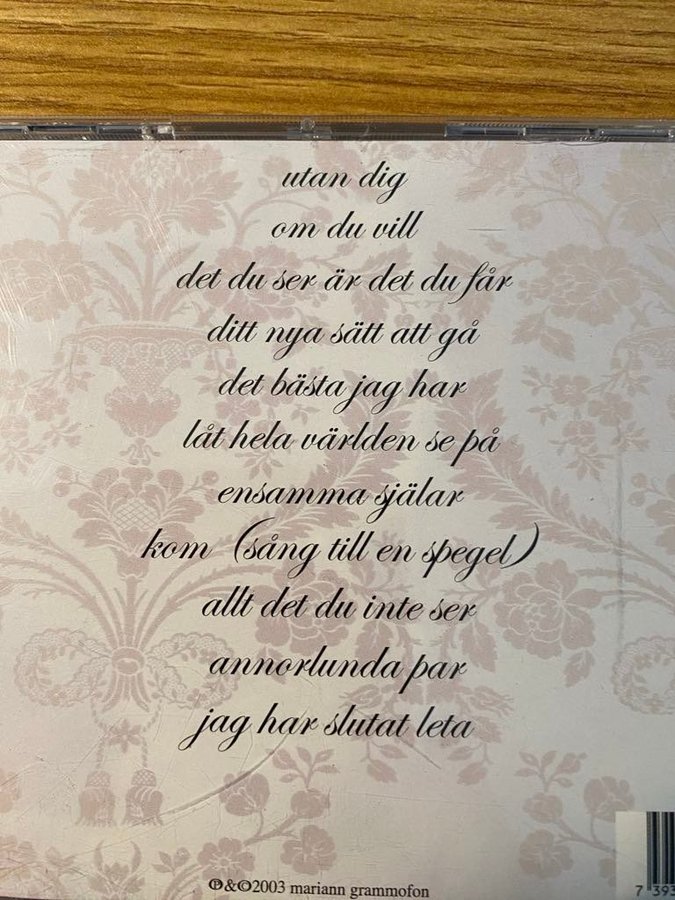 utan dig
om du vill
det du ser är det du får
ditt nya sätt att gå
det bästa jag har
låt hela världen se på
ensamma själar
kom (sång till en spegel)
allt det du inte ser
annorlunda par
jag har slutat leta
℗&©2003 mariann grammofon
7 393